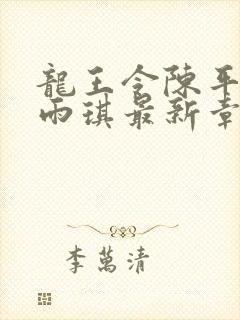 龍王令陳平
雨琪最新章
李萬清